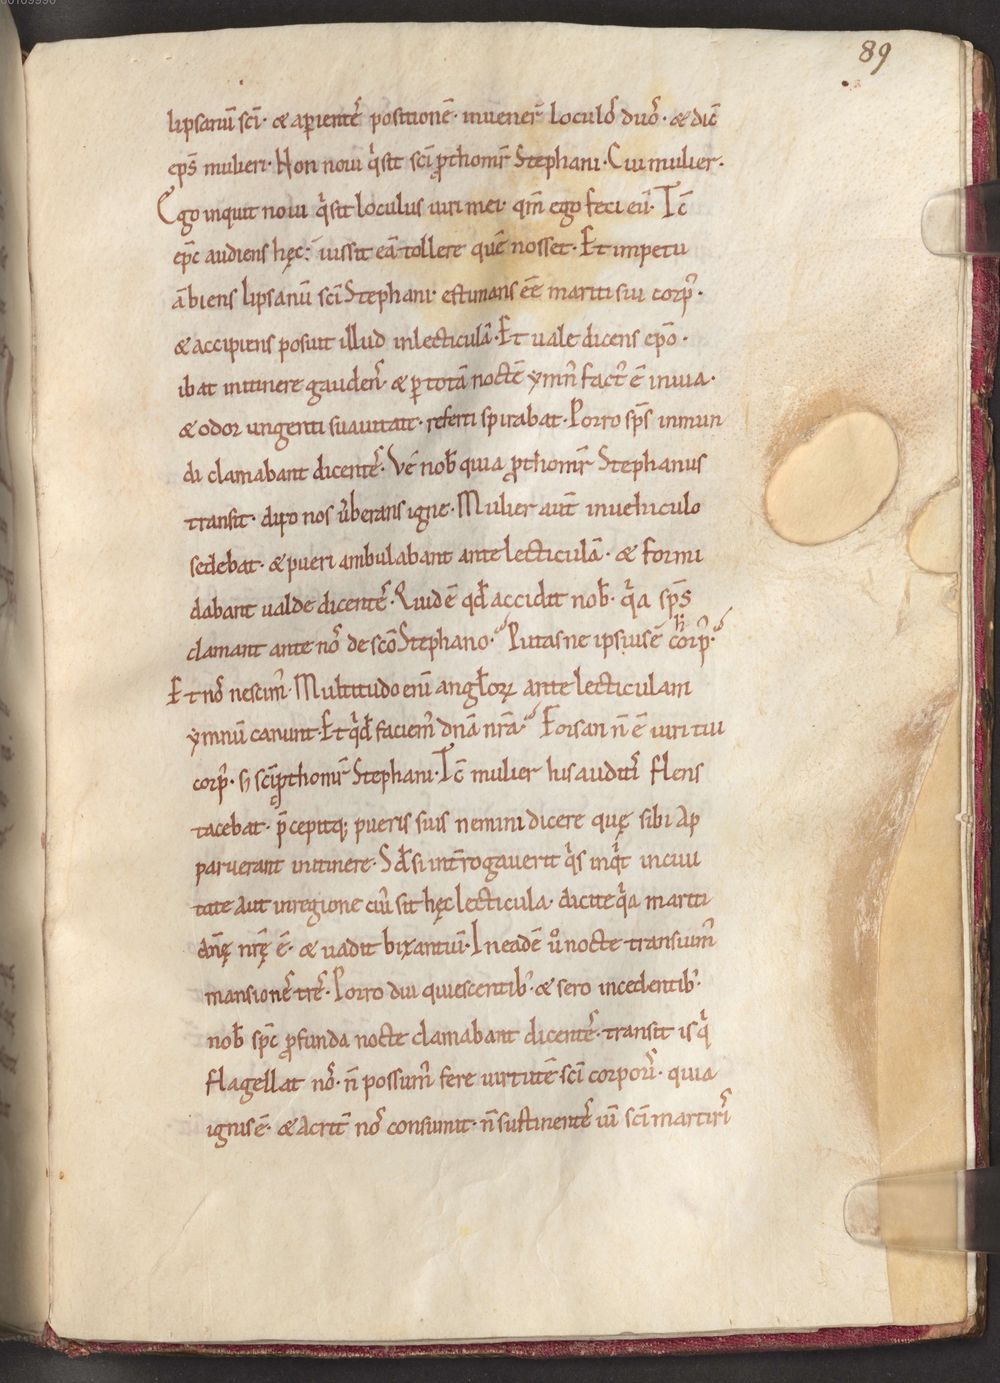 89
lipsanū sc̄i· & aperientes̄ positionē· inuener̄ loculos̄ duos̄· & dic̄
ep̄s mulieri· Non noui q̊ sit sc̄i p̱thom̄r Stephani· Cui mulier·
Ego inquit noui q̊ sit loculus uiri mei· qm̄ ego feci eū· Tc̄
ep̄c audiens hęc: iussit eā tollere quē nosset· Et impetu
ābiens lipsanū sc̄i Stephani· estimans eē mariti sui corp᷒·
& accipiens posuit illud in lecticulā· Et uale dicens ep̄o·
ibat in itinere gaudens̄· & p̱ totā noctē ymn᷒ fact᷒ ē in uia·
& odor ungenti suauitatt· referti spirabat· Porro sp̄s inmun
di clamabant dicentes̄· Vē nob̄ quia p̱thom̄r Stephanus
transit· diro nos ūberans igne· Mulier aut̄ in uehiculo
sedebat· & pueri ambulabant ante lecticulā· & formi
dabant ualde dicentes̄· Quid ē qd̄ accidit nob̄· qͣa sp̄s
clamant ante nos̄ de sc̄o Stephano· Putas ne ipsius ē h̄ corp᷒·
Et nos̄ nescim᷒· Multitudo eni᷒ angl̄oꝝ ante lecticulam
ymnū canunt· Et qͥd faciem᷒ dn̄a nr̄a· Forsan n̄ ē uiri tui
corp᷒· s; sc̄i p̱thom̄r Stephani· Tc̄ mulier his audit᷒ flens
tacebat· p̄cepitq; pueris suis nemini dicere quę sibi ap
paruerant in itinere· Sd̄ si int̄rogauerit qͥs inqͥt in ciui
tate aut in regione cui᷒ sit hęc lecticula· dicite qͣa mariti
dn̄ę nr̄ę ē· & uadit bixantiū· In eadē ů nocte transiuim᷒
mansiones̄ tres̄· Porro diu quiescentib᷒· & sero incedentib᷒·
nob̄ sp̄c p̱funda nocte clamabant dicentes̄· transit is qͥ
flagellat nos̄· n̄ possum᷒ fere uirtutē sc̄i corporis̄· quia
ignis ē· & acrit̄ nos̄ consumit· n̄ sustinentes̄ uī sc̄i martiris̄